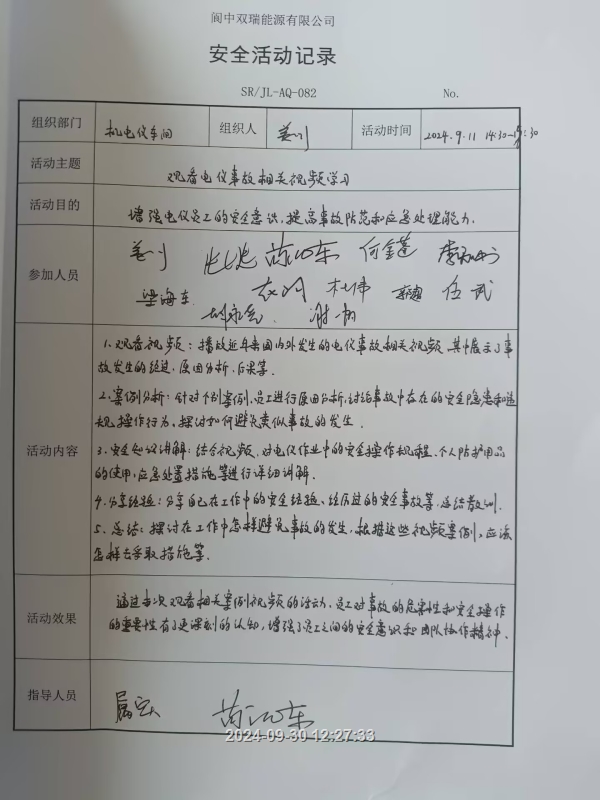 阆中双瑞能源有限公司
安全活动记录
SR/JL-AQ-082 No.
组织部门 机电仪车间 组织人 姜川 活动时间 2024.9.11 14:30-15:30
活动主题 观看电仪事故相关视频学习
活动目的 增强电仪员工的安全意识,提高事故防范和应急处理能力.
姜川 何金蓬
参加人员 梁海东 杜伟 任武
1.观看视频:播放近年来国内外发生的电仪事故相关视频,其中展示了事
故发生的经过,原因分析,后果等.
2.案例分析:针对个别案例,员工进行原因分析,讨论事故中存在的安全隐患和违
规操作行为,探讨如何避免类似事故的发生.
3.安全知识讲解:结合视频,对电仪作业中的安全操作规程,个人防护用品
活动内容 的使用,应急处置措施等进行详细讲解.
4.分享经验:分享自己在工作中的安全经验、经历过的安全事故等,总结教训.
5.总结:探讨在工作中怎样避免事故的发生,根据这些视频案例,应该
怎样去采取措施等.
通过本次观看相关案例视频的活动,员工对事故的危害性和安全操作
活动效果 的重要性有了更深刻的认知,增强了员工之间的安全意识和团队协作精神.
指导人员
2024-09-30 12:27:33